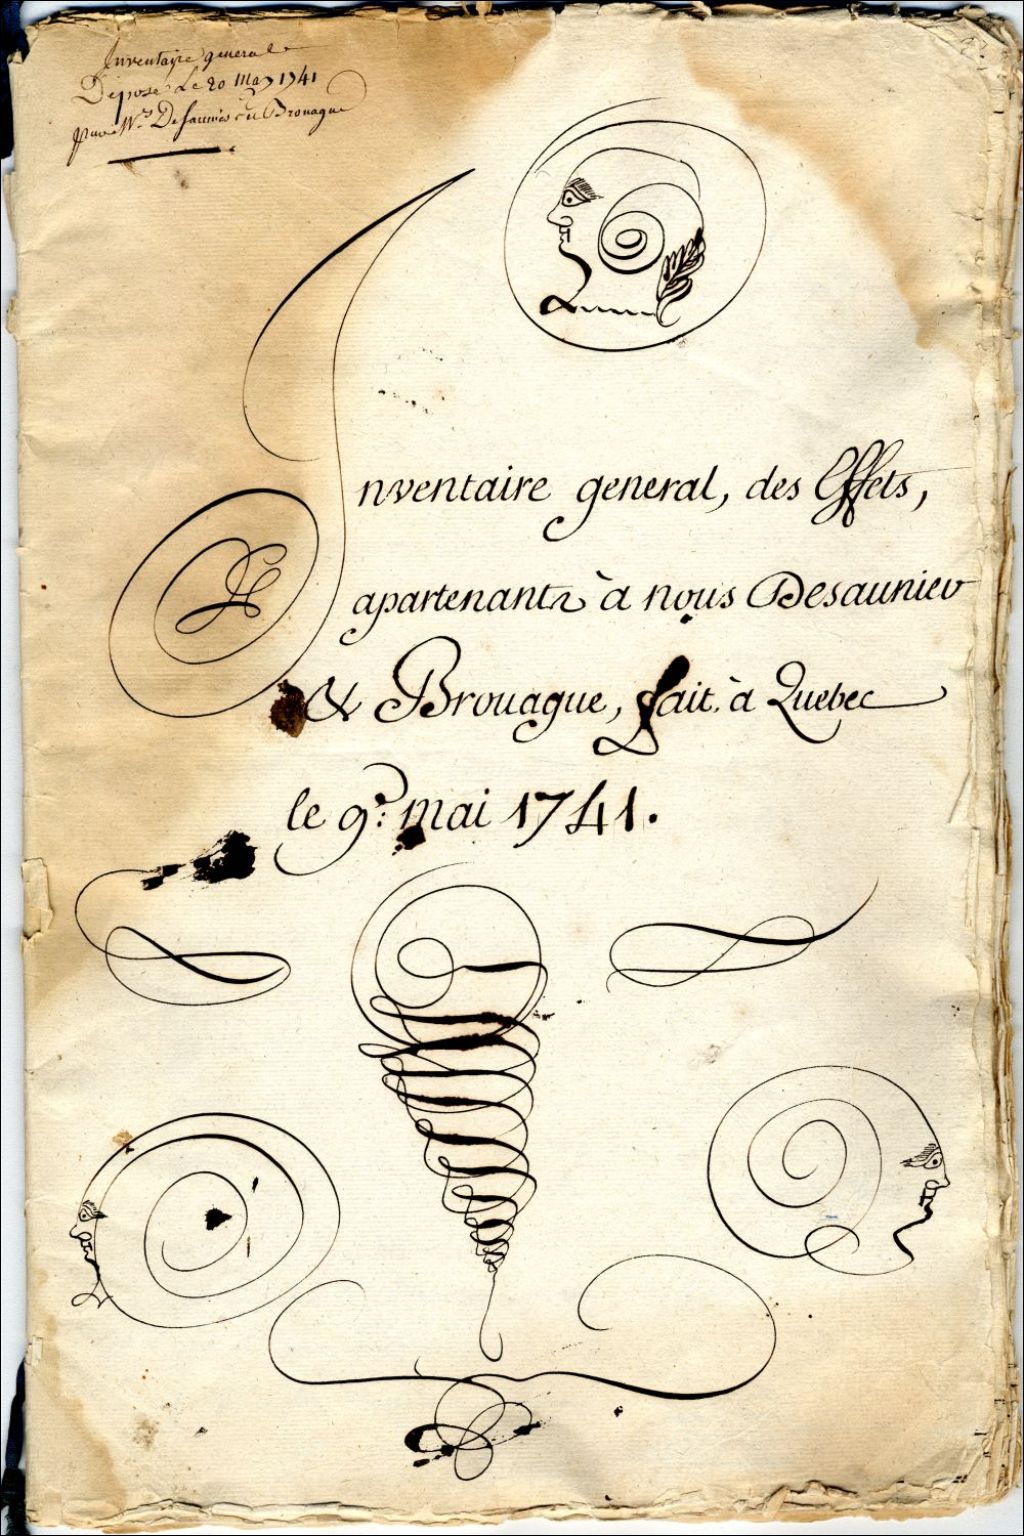 Inventaire general
Deposé Le 20 May 1741
par Mrs Desauniers et Brouague
Inventaire general, des Effets,
apartenants à nous Desaunier
& Brouague, fait à Quebec
le 9e: mai 1741.